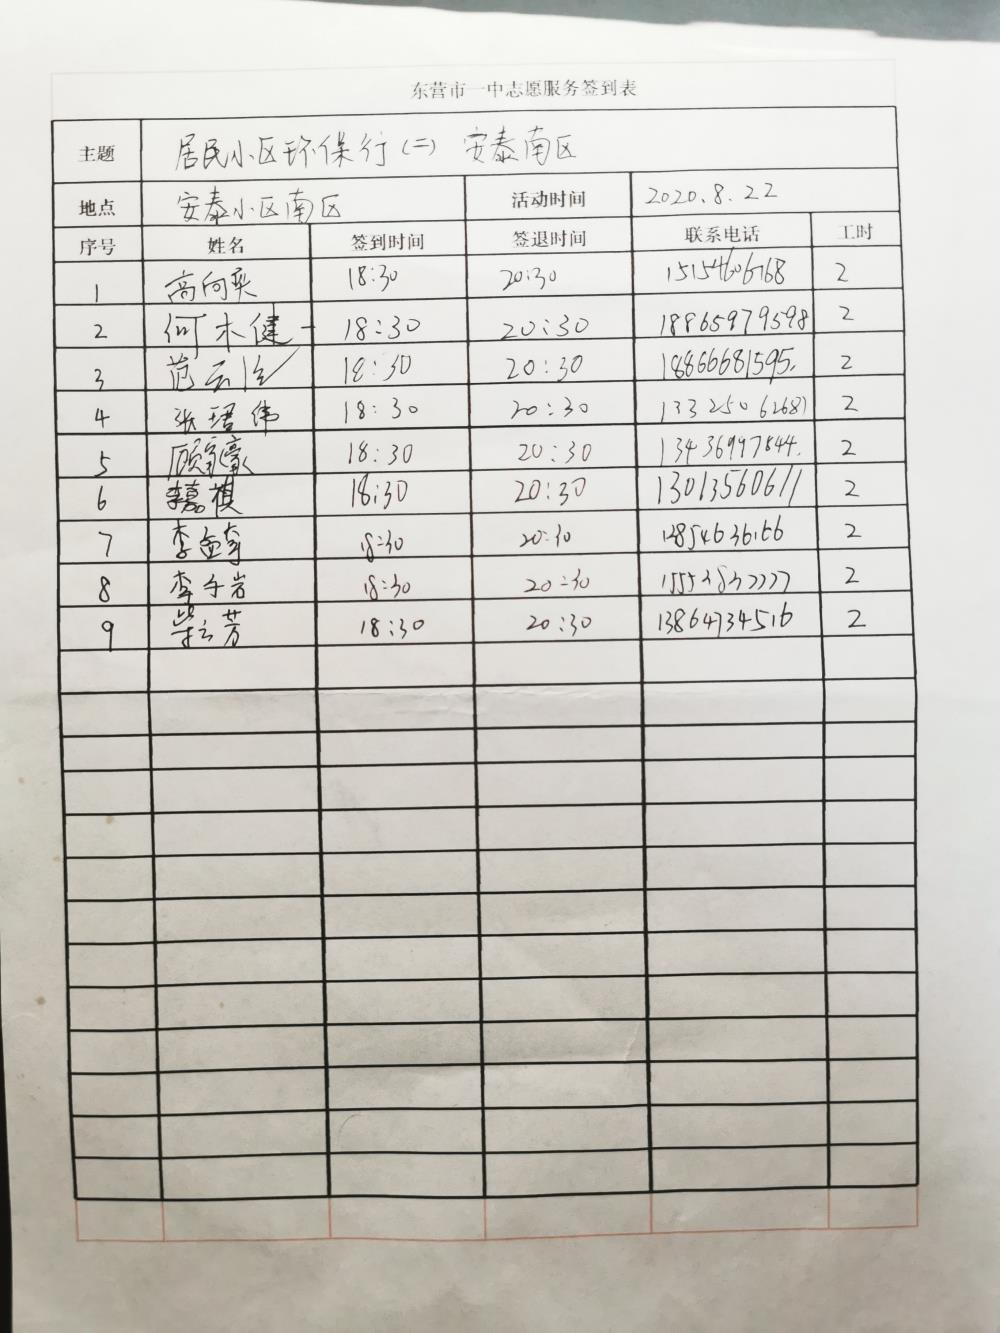 东营市一中志愿服务签到表
主题 居民小区环保行(二) 安泰南区
地点 安泰小区南区 活动时间 2020.8.22
序号 姓名 签到时间 签退时间 联系电话 工时
1 高向奕 18:30 20:30 15154606168 2
2 何木健一 18:30 20:30 18865979598 2
3 18:30 20:30 18866681595. 2
4 张珺伟 18:30 20:30 13325062687 2
5 顾家豪 18:30 20:30 13436997844. 2
6 李嘉祺 18:30 20:30 13013560611 2
7 李孟奇 18:30 20:30 2
8 李子岩 18:30 20:30 2
9 柴云芳 18:30 20:30 13864734516 2